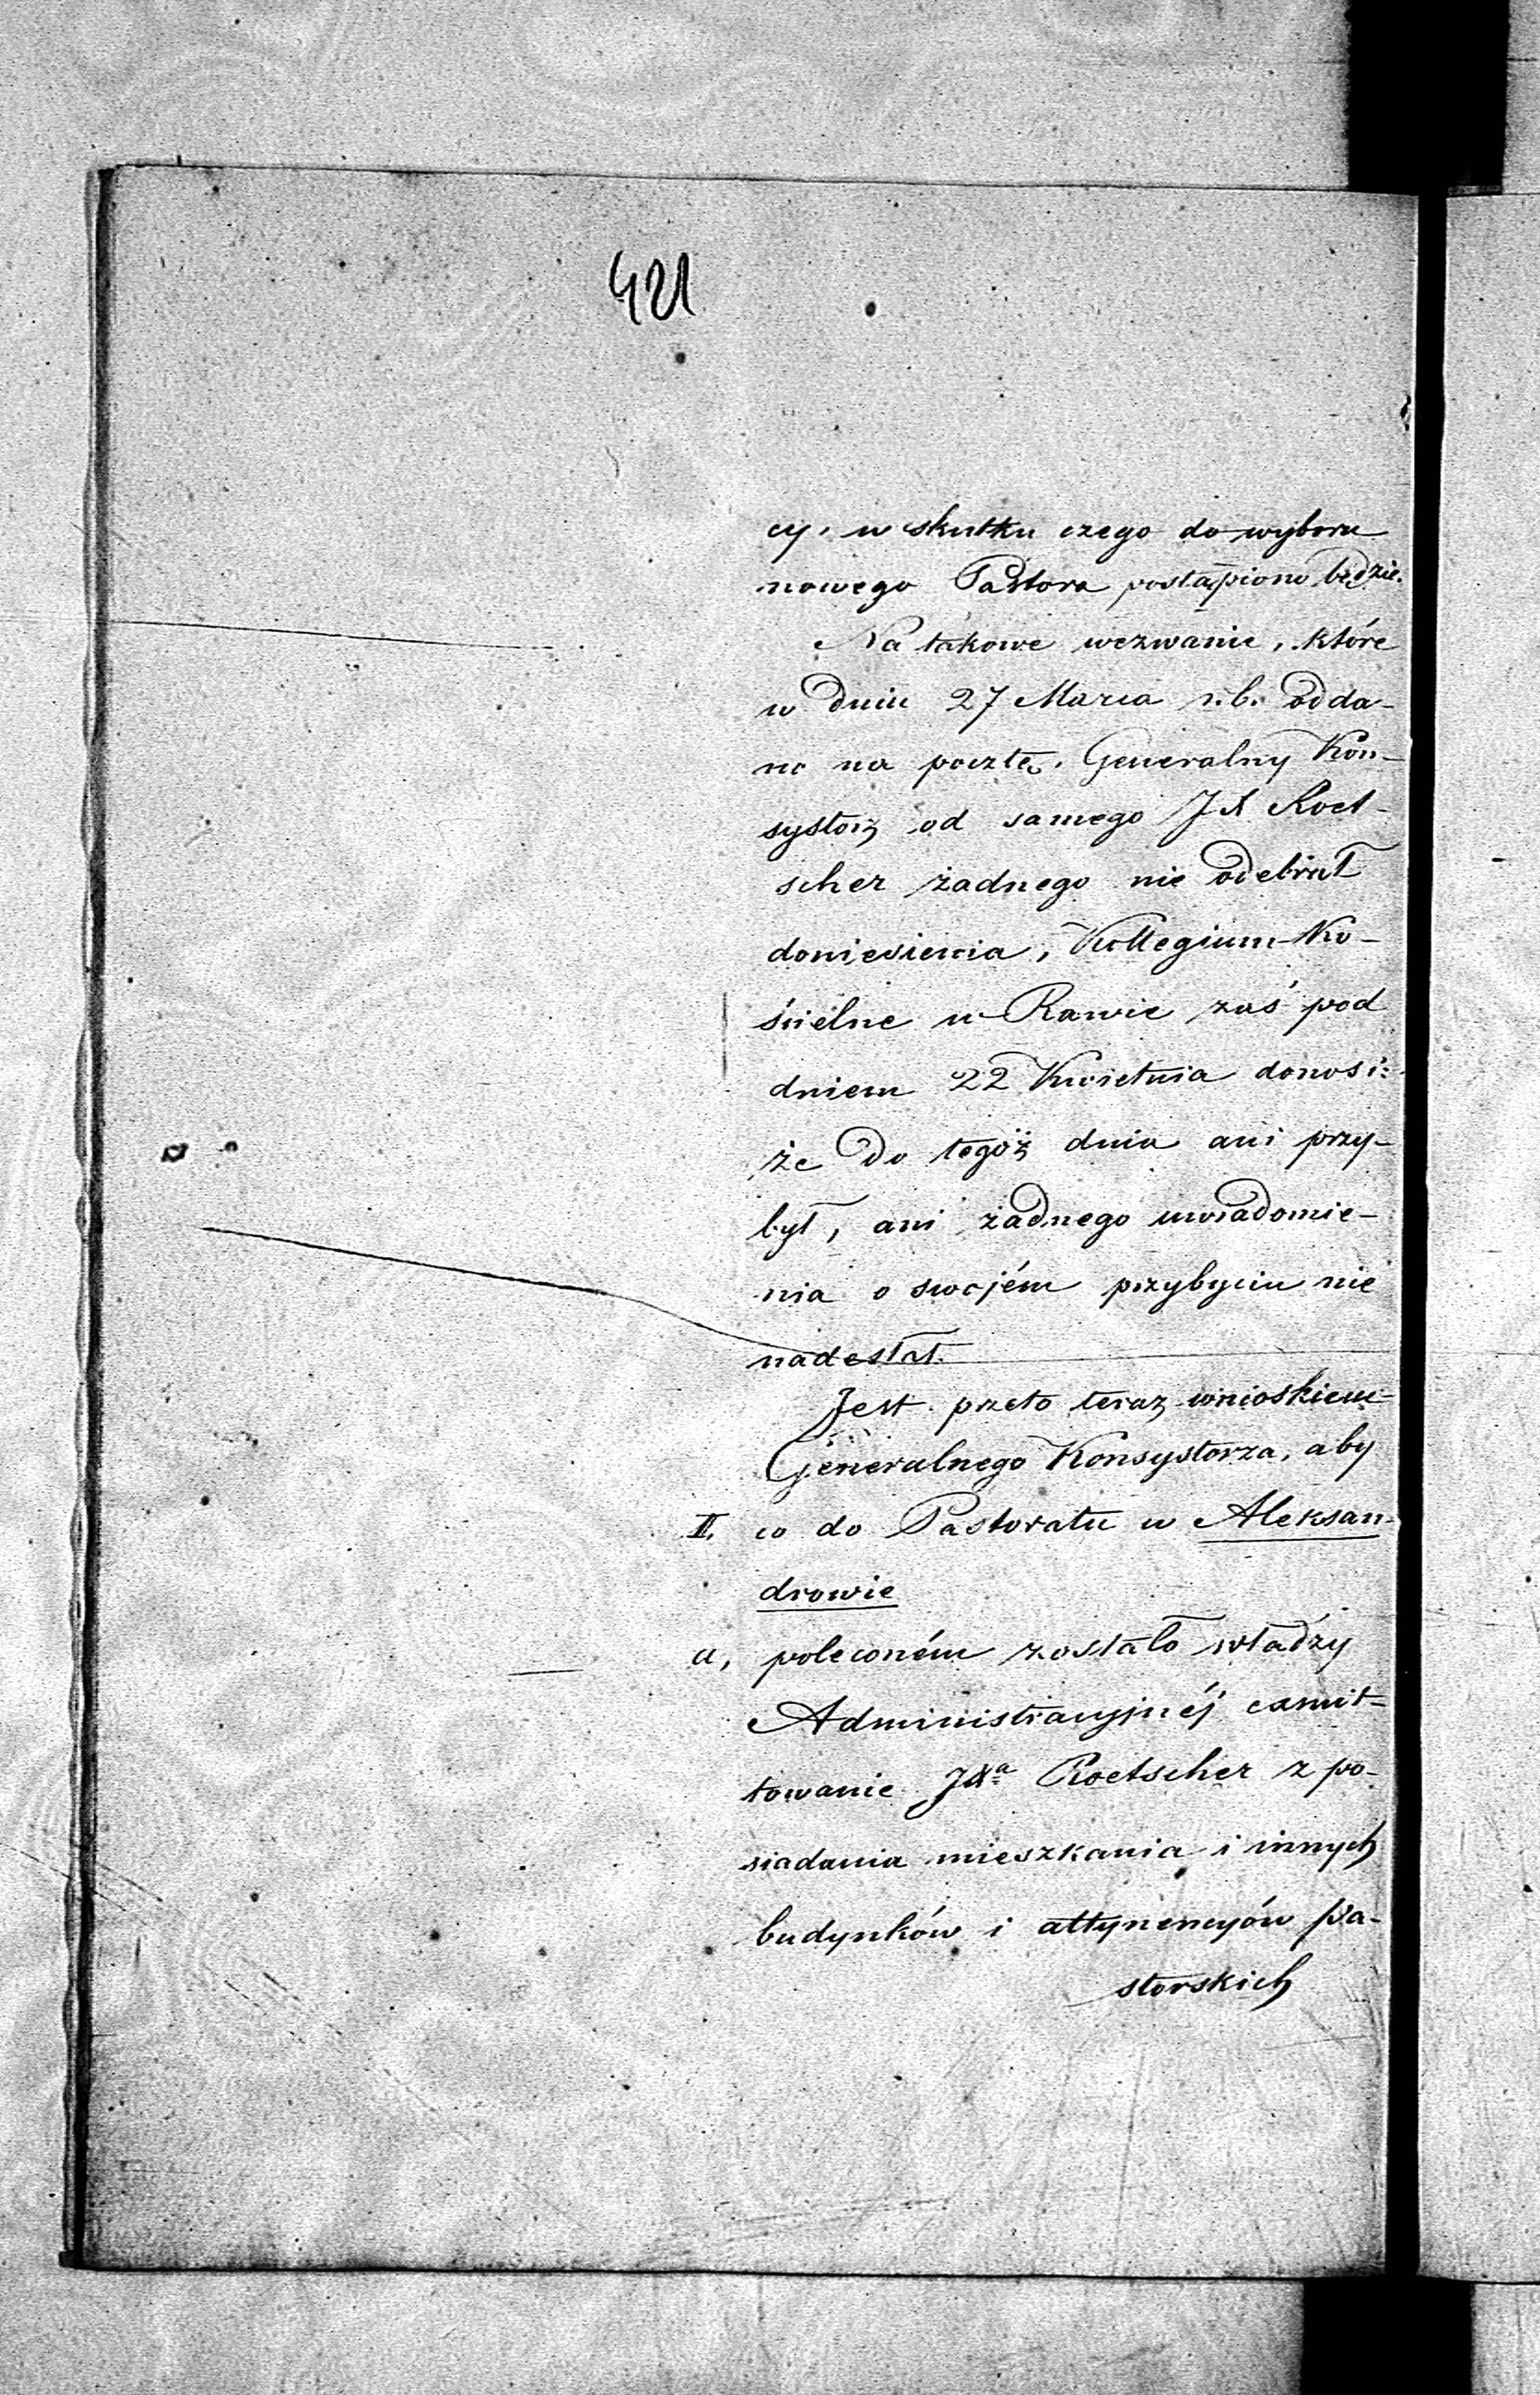 421
cy, w skutku czego do wyboru
nowego Pastora postąpiono będzie.
Na takowe wezwanie, które
w dniu 27 Marca r.b. odda-
no na pocztę, Generalny Kon-
systorz od samego JX Roet-
scher żadnego nie odebrał
doniesienia, Kollegium Ko-
ścielne w Rawie zaś pod
dniem 22 Kwietnia donosi:
że do tegóż dnia ani przy-
był, ani żadnego uwiadomie-
nia o swojém przybyciu nie
nadesłał.
Jest przeto teraz wnioskiem
Generalnego Konsystorza, aby
II, co do Pastoratu w Aleksan-
drowie
a, poleconém zostało władzy
Administracyjnéj exmit-
towanie JXa Roetscher z po-
siadania mieszkania i innych
budynków i attynencyów pa-
storskich